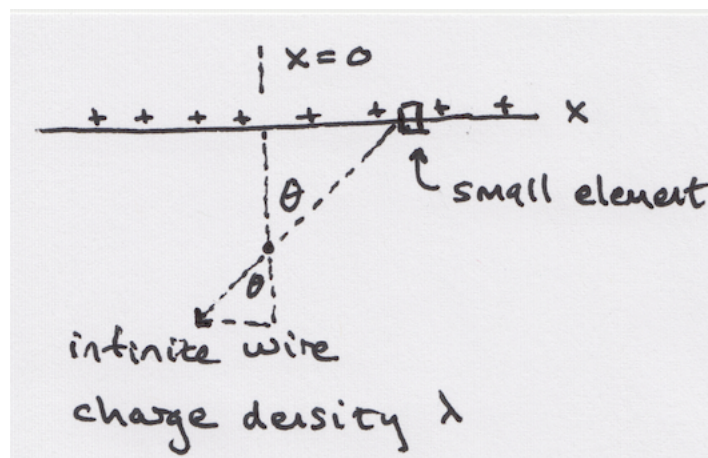 x = 0
+ + + + + + + + x
θ
small element
θ
infinite wire
charge density λ